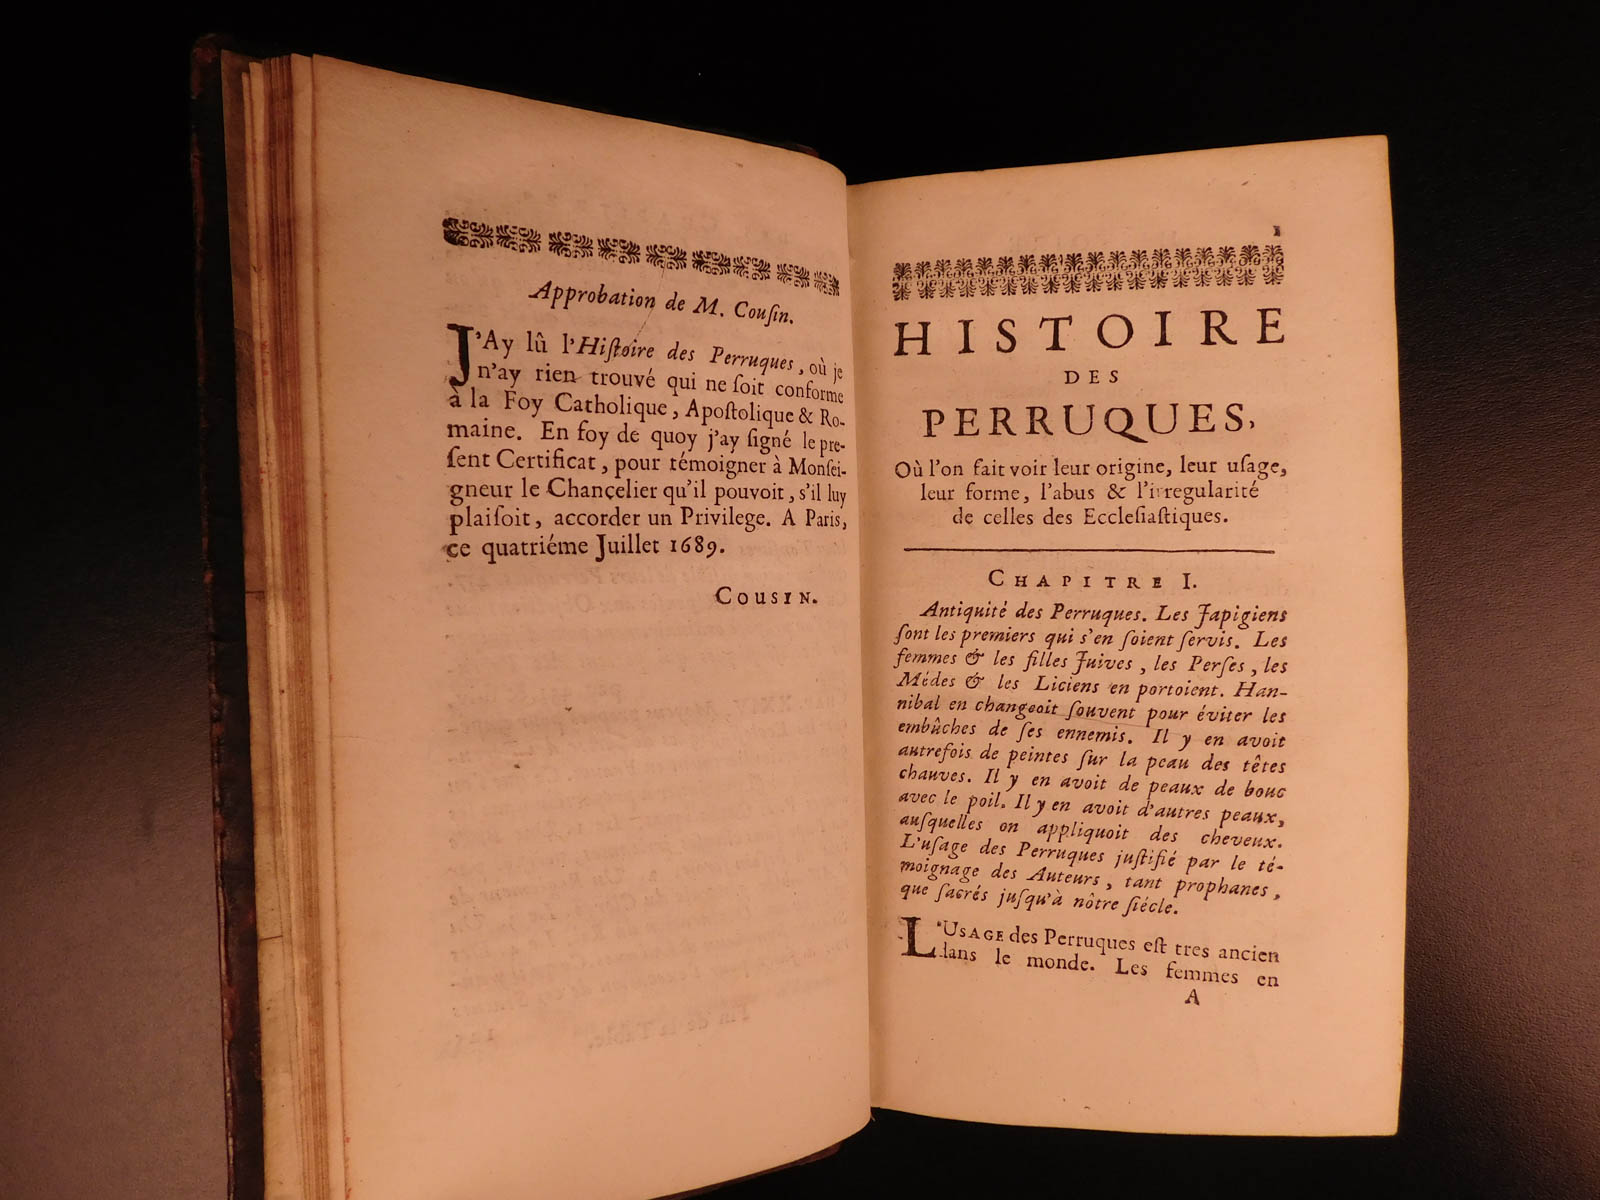 Approbation de M. Couſin.
J'Ay lû l'Hiſtoire des Perruques, où je
n'ay rien trouvé qui ne ſoit conforme
à la Foy Catholique, Apoſtolique & Ro-
maine. En foy de quoy j'ay ſigné le pre-
ſent Certificat, pour témoigner à Monſei-
gneur le Chançelier qu'il pouvoit, s'il luy
plaiſoit, accorder un Privilege. A Paris,
ce quatriéme Juillet 1689.
COUSIN.
1
HISTOIRE
DES
PERRUQUES,
Où l'on fait voir leur origine, leur uſage,
leur forme, l'abus & l'irregularité
de celles des Eccleſiaſtiques.
CHAPITRE I.
Antiquité des Perruques. Les Japigiens
ſont les premiers qui s'en ſoient ſervis. Les
femmes & les filles Juives, les Perſes, les
Médes & les Liciens en portoient. Han-
nibal en changeoit ſouvent pour éviter les
embûches de ſes ennemis. Il y en avoit
autrefois de peintes ſur la peau des têtes
chauves. Il y en avoit de peaux de bouc
avec le poil. Il y en avoit d'autres peaux,
auſquelles on appliquoit des cheveux.
L'uſage des Perruques juſtifié par le té-
moignage des Auteurs, tant prophanes,
que ſacrés juſqu'à nôtre ſiécle.
L'USAGE des Perruques eſt tres ancien
dans le monde. Les femmes en
A